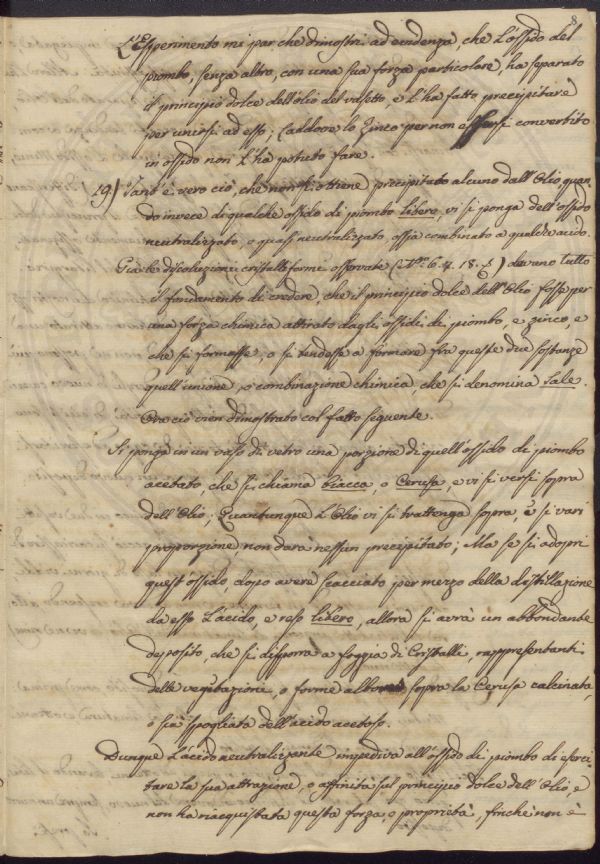 8
L'Esperimento mi par che dimostri ad evidenza, che l'ossido del
piombo, senza altro, con una sua forza particolare, ha separato
il principio dolce dell'olio del vasetto, e l'ha fatto precipitare
per unirsi ad esso; Laddove lo Zinco per non essersi convertito
in ossido non l'ha potuto fare.
19) Tanto è vero ciò, che non si ottiene precipitato alcuno dall'Olio quan-
do invece di qualche ossido di piombo libero, vi si ponga dell'ossido
neutralizzato, o quasi neutralizzato, ossia combinato a qualche acido.
Già le dissoluzioni cristalliformi osservate (N.ri 6. 7. 18.) davano tutto
il fondamento di credere, che il principio dolce dell'Olio fosse per
una forza chimica attirato dagli ossidi di piombo, e zinco, e
che si formasse, o si tendesse a formare fra queste due sostanze
quell'unione, o combinazione chimica, che si denomina Sale.
Ora ciò vien dimostrato col fatto seguente.
Si ponga in un vaso di vetro una porzione di quell'ossido di piombo
acetato, che si chiama biacca, o Cerusa, e vi si versi sopra
dell'Olio; Quantunque l'Olio vi si trattenga sopra, e si vari
proporzione non darà nessun precipitato; Ma se si adopri
quest'ossido, dopo avere scacciato per mezzo della distillazione
da esso l'acido, e reso libero, allora si avrà un abbondante
deposito, che si disporrà a foggia di Cristalli, rappresentanti
delle vegetazione, o forme sopra la Cerusa calcinata,
o sia spogliata dell'acido acetoso.
Dunque l'acido neutralizzante impediva all'ossido di piombo di eserci-
tare la sua attrazione, o affinità sul principio dolce dell'Olio, e
non ha riacquistata questa forza, o proprietà, finchè non è